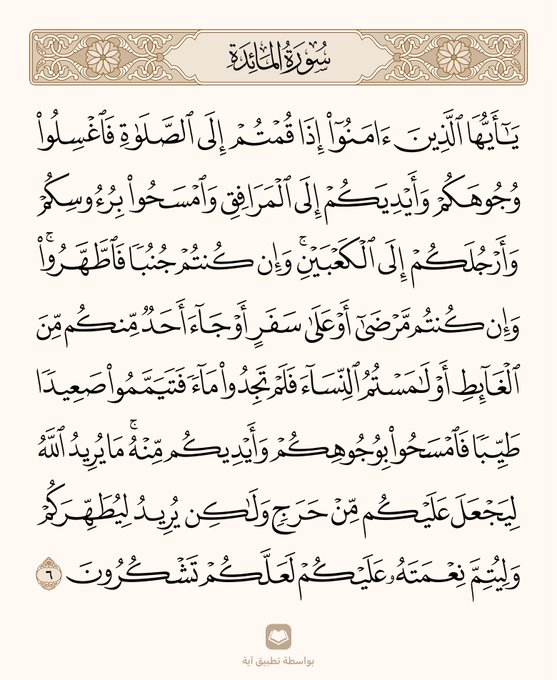 سُورَةُ المَائِدَةِ
يَـٰٓأَيُّهَا ٱلَّذِينَ ءَامَنُوٓا۟ إِذَا قُمْتُمْ إِلَى ٱلصَّلَوٰةِ فَٱغْسِلُوا۟
وُجُوهَكُمْ وَأَيْدِيَكُمْ إِلَى ٱلْمَرَافِقِ وَٱمْسَحُوا۟ بِرُءُوسِكُمْ
وَأَرْجُلَكُمْ إِلَى ٱلْكَعْبَيْنِ ۚ وَإِن كُنتُمْ جُنُبًا فَٱطَّهَّرُوا۟ ۚ
وَإِن كُنتُم مَّرْضَىٰٓ أَوْ عَلَىٰ سَفَرٍ أَوْ جَآءَ أَحَدٌ مِّنكُم مِّنَ
ٱلْغَآئِطِ أَوْ لَـٰمَسْتُمُ ٱلنِّسَآءَ فَلَمْ تَجِدُوا۟ مَآءً فَتَيَمَّمُوا۟ صَعِيدًا
طَيِّبًا فَٱمْسَحُوا۟ بِوُجُوهِكُمْ وَأَيْدِيكُم مِّنْهُ ۚ مَا يُرِيدُ ٱللَّهُ
لِيَجْعَلَ عَلَيْكُم مِّنْ حَرَجٍ وَلَـٰكِن يُرِيدُ لِيُطَهِّرَكُمْ
وَلِيُتِمَّ نِعْمَتَهُۥ عَلَيْكُمْ لَعَلَّكُمْ تَشْكُرُونَ ٦
بواسطة تطبيق آية